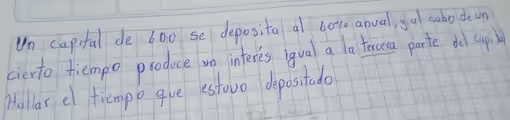 Un capital de 600 se deposita al 60% anual, y al cabo de un
cierto tiempo produce un interés igual a la tercera parte del capital
Hallar el tiempo que estuvo depositado